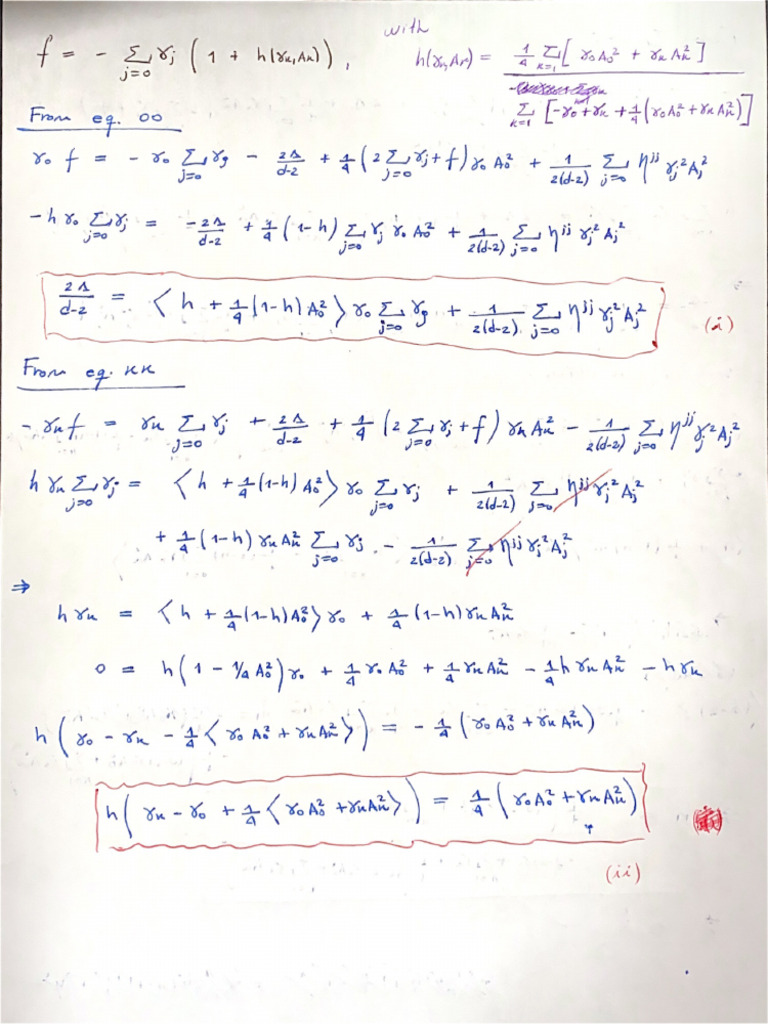 with
f = - Σ_{j=0} γ_j ( 1 + h(γ_κ, A_κ) ) , h(γ_κ, A_κ) = 1/4 Σ_{κ=1} [ γ_0 A_0^2 + γ_κ A_κ^2 ] / Σ_{κ=1} [ -γ_0 + γ_κ + 1/4 ( γ_0 A_0^2 + γ_κ A_κ^2 ) ]
From eq. 00
γ_0 f = - γ_0 Σ_{j=0} γ_j - 2Λ/(d-2) + 1/4 ( 2 Σ_{j=0} γ_j + f ) γ_0 A_0^2 + 1/(2(d-2)) Σ_{j=0} η^{jj} γ_j^2 A_j^2
- h γ_0 Σ_{j=0} γ_j = - 2Λ/(d-2) + 1/4 ( 1 - h ) Σ_{j=0} γ_j γ_0 A_0^2 + 1/(2(d-2)) Σ_{j=0} η^{jj} γ_j^2 A_j^2
2Λ/(d-2) = ⟨ h + 1/4 (1-h) A_0^2 ⟩ γ_0 Σ_{j=0} γ_j + 1/(2(d-2)) Σ_{j=0} η^{jj} γ_j^2 A_j^2 (i)
From eq. κκ
- γ_κ f = γ_κ Σ_{j=0} γ_j + 2Λ/(d-2) + 1/4 ( 2 Σ_{j=0} γ_j + f ) γ_κ A_κ^2 - 1/(2(d-2)) Σ_{j=0} η^{jj} γ_j^2 A_j^2
h γ_κ Σ_{j=0} γ_j = ⟨ h + 1/4 (1-h) A_0^2 ⟩ γ_0 Σ_{j=0} γ_j + 1/(2(d-2)) Σ_{j=0} η^{jj} γ_j^2 A_j^2
+ 1/4 (1-h) γ_κ A_κ^2 Σ_{j=0} γ_j - 1/(2(d-2)) Σ_{j=0} η^{jj} γ_j^2 A_j^2
⇒
h γ_κ = ⟨ h + 1/4 (1-h) A_0^2 ⟩ γ_0 + 1/4 (1-h) γ_κ A_κ^2
0 = h ( 1 - 1/4 A_0^2 ) γ_0 + 1/4 γ_0 A_0^2 + 1/4 γ_κ A_κ^2 - 1/4 h γ_κ A_κ^2 - h γ_κ
h ( γ_0 - γ_κ - 1/4 ⟨ γ_0 A_0^2 + γ_κ A_κ^2 ⟩ ) = - 1/4 ( γ_0 A_0^2 + γ_κ A_κ^2 )
h ( γ_κ - γ_0 + 1/4 ⟨ γ_0 A_0^2 + γ_κ A_κ^2 ⟩ ) = 1/4 ( γ_0 A_0^2 + γ_κ A_κ^2 )
(ii)